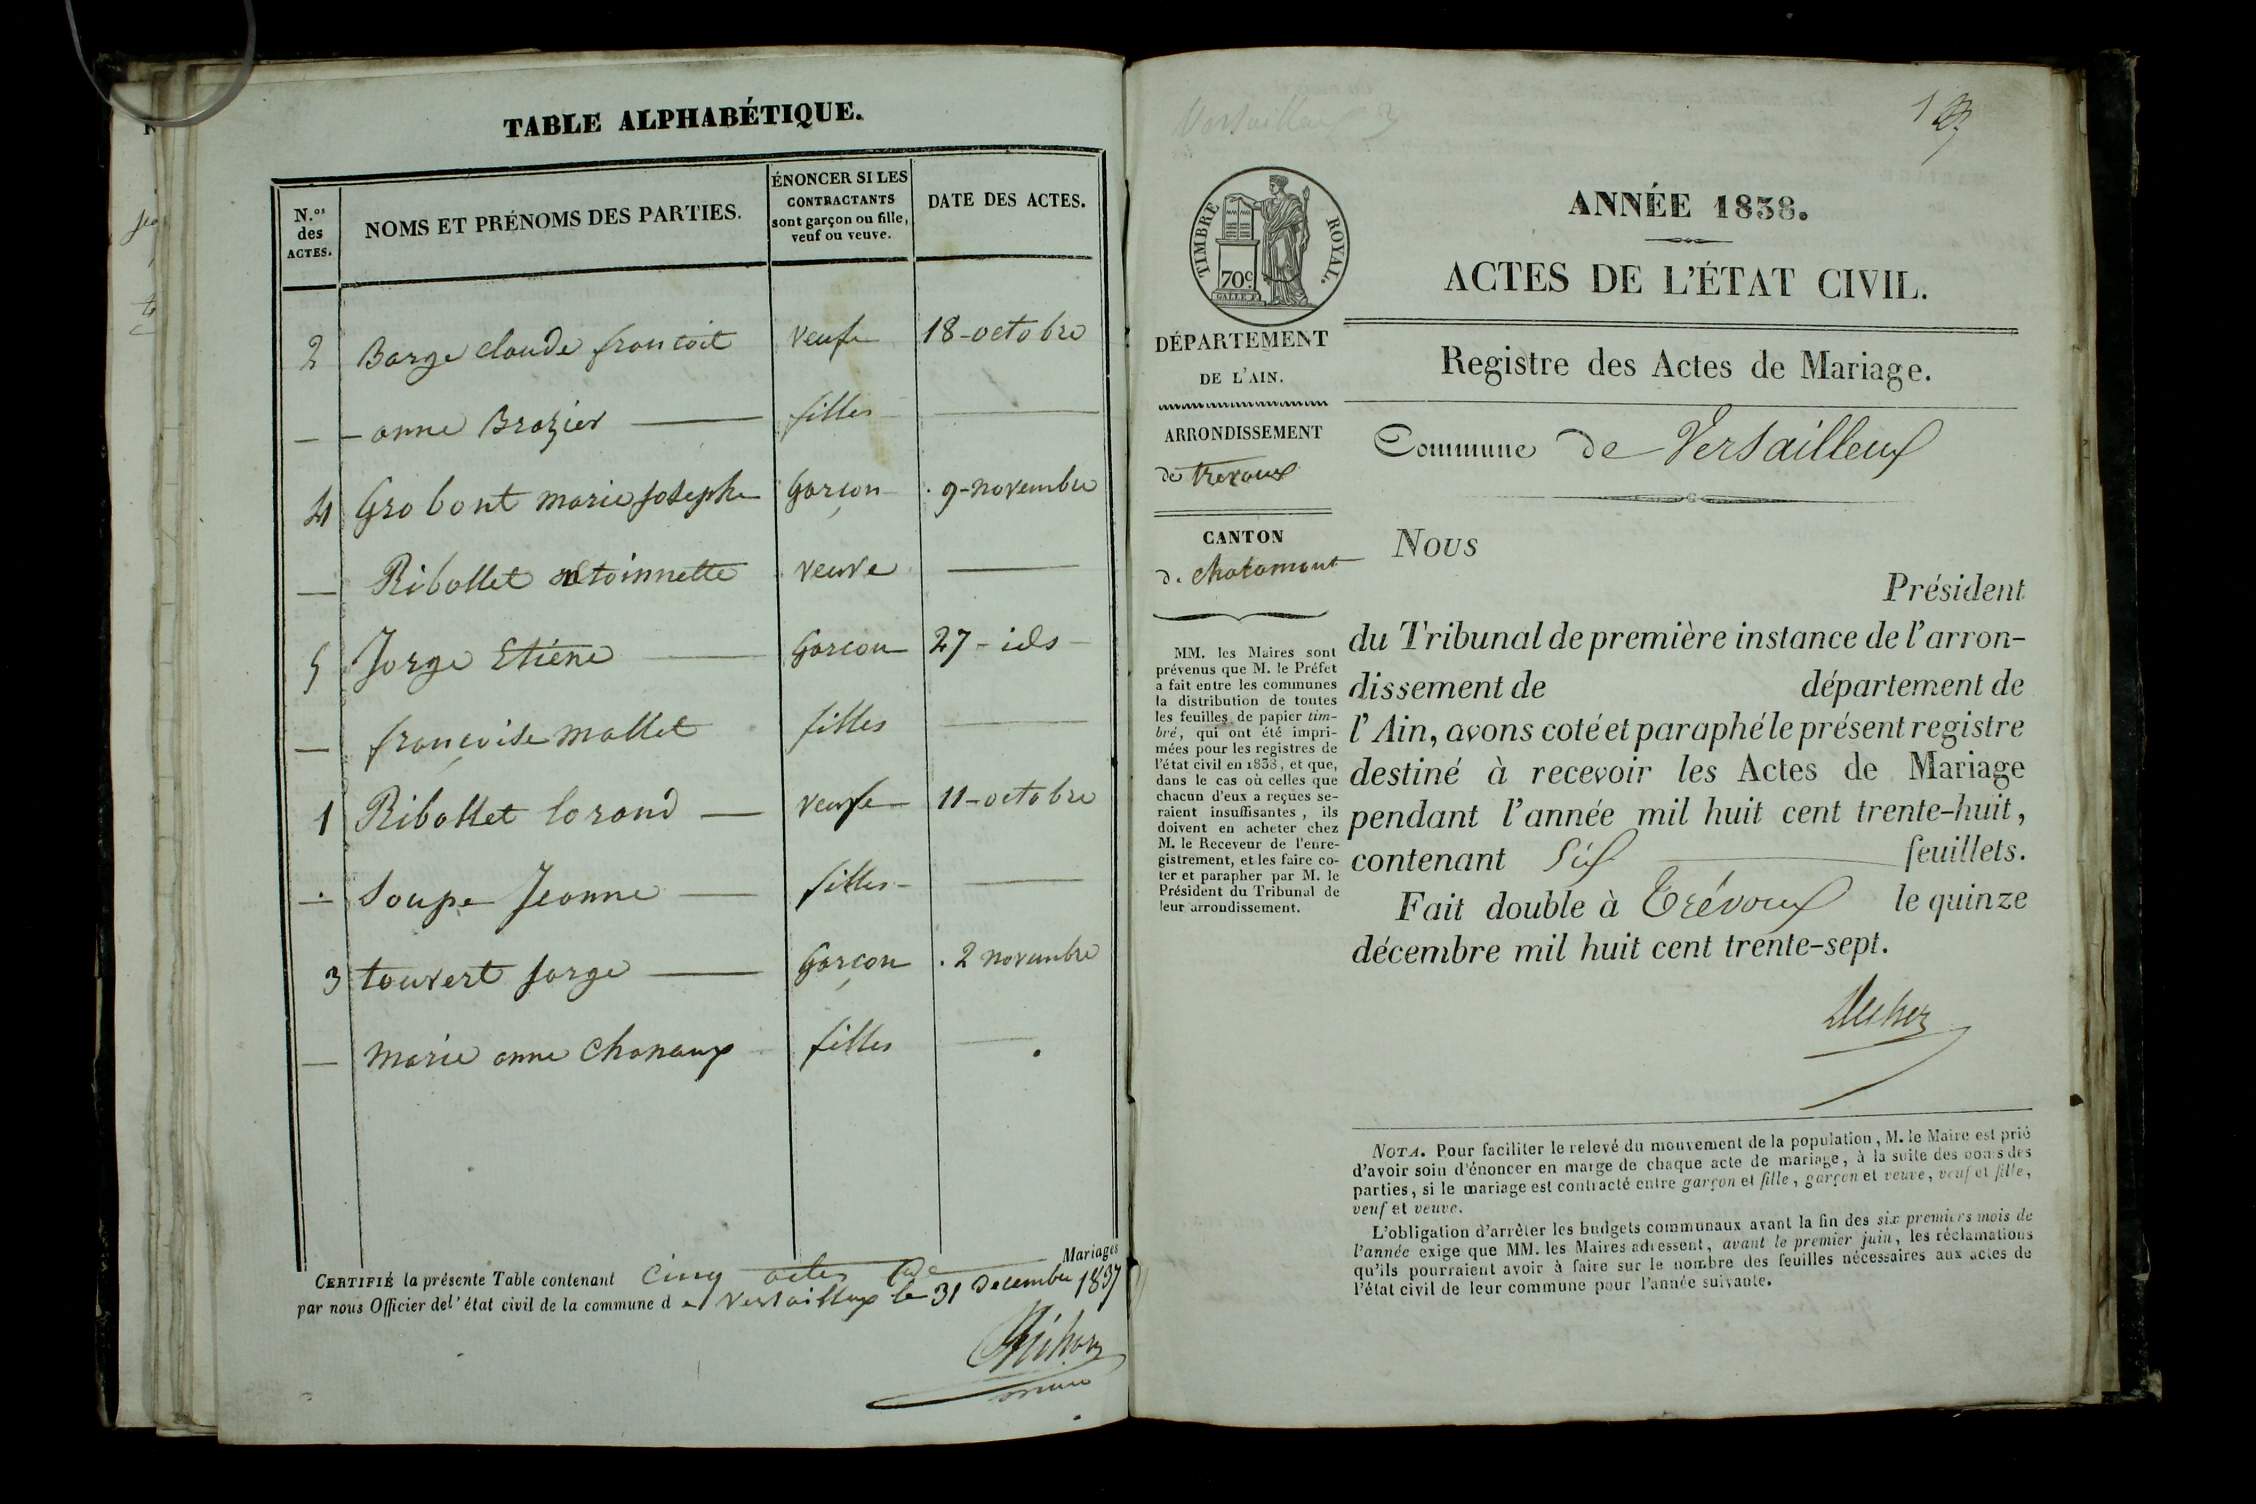 TABLE ALPHABÉTIQUE.
N.os des ACTES.
NOMS ET PRÉNOMS DES PARTIES.
ÉNONCER SI LES
CONTRACTANTS
sont garçon ou fille,
veuf ou veuve.
DATE DES ACTES.
2 Barge claude francoit veufe 18-octobre
— anne Brazier — filles —
4 Grobont marie Josephe Garçon 9-novembre
— Ribollet antoinnette veuve —
5 Jorge Etiéne — Garcon 27-ids-
— françoise mallet filles —
1 Ribollet lorand — veufe 11-octobre
— Soupe Jeanne — filles —
3 touvert Jorge — Garçon 2 novembre
— Marie anne Chanaux filles —
CERTIFIÉ la présente Table contenant cinq actes de Mariages
par nous Officier de l'état civil de la commune de Versailleux le 31 decembre 1837
Versailleux
ANNÉE 1838.
ACTES DE L'ÉTAT CIVIL.
TIMBRE ROYAL.
70c
DÉPARTEMENT
DE L'AIN.
ARRONDISSEMENT
de trevoux
CANTON
de chatamont
MM. les Maires sont
prévenus que M. le Préfet
a fait entre les communes
la distribution de toutes
les feuilles de papier tim-
bré, qui ont été impri-
mées pour les registres de
l'état civil en 1838, et que,
dans le cas où celles que
chacun d'eux a reçues se-
raient insuffisantes, ils
doivent en acheter chez
M. le Receveur de l'enre-
gistrement, et les faire co-
ter et parapher par M. le
Président du Tribunal de
leur arrondissement.
Registre des Actes de Mariage.
Commune de Versailleux
Nous
Président
du Tribunal de première instance de l'arron-
dissement de département de
l'Ain, avons coté et paraphé le présent registre
destiné à recevoir les Actes de Mariage
pendant l'année mil huit cent trente-huit,
contenant Six feuillets.
Fait double à Trévoux le quinze
décembre mil huit cent trente-sept.
NOTA. Pour faciliter le relevé du mouvement de la population, M. le Maire est prié
d'avoir soin d'énoncer en marge de chaque acte de mariage, à la suite des noms des
parties, si le mariage est contracté entre garçon et fille, garçon et veuve, veuf et fille,
veuf et veuve.
L'obligation d'arrêter les budgets communaux avant la fin des six premiers mois de
l'année exige que MM. les Maires adressent, avant le premier juin, les réclamations
qu'ils pourraient avoir à faire sur le nombre des feuilles nécessaires aux actes de
l'état civil de leur commune pour l'année suivante.